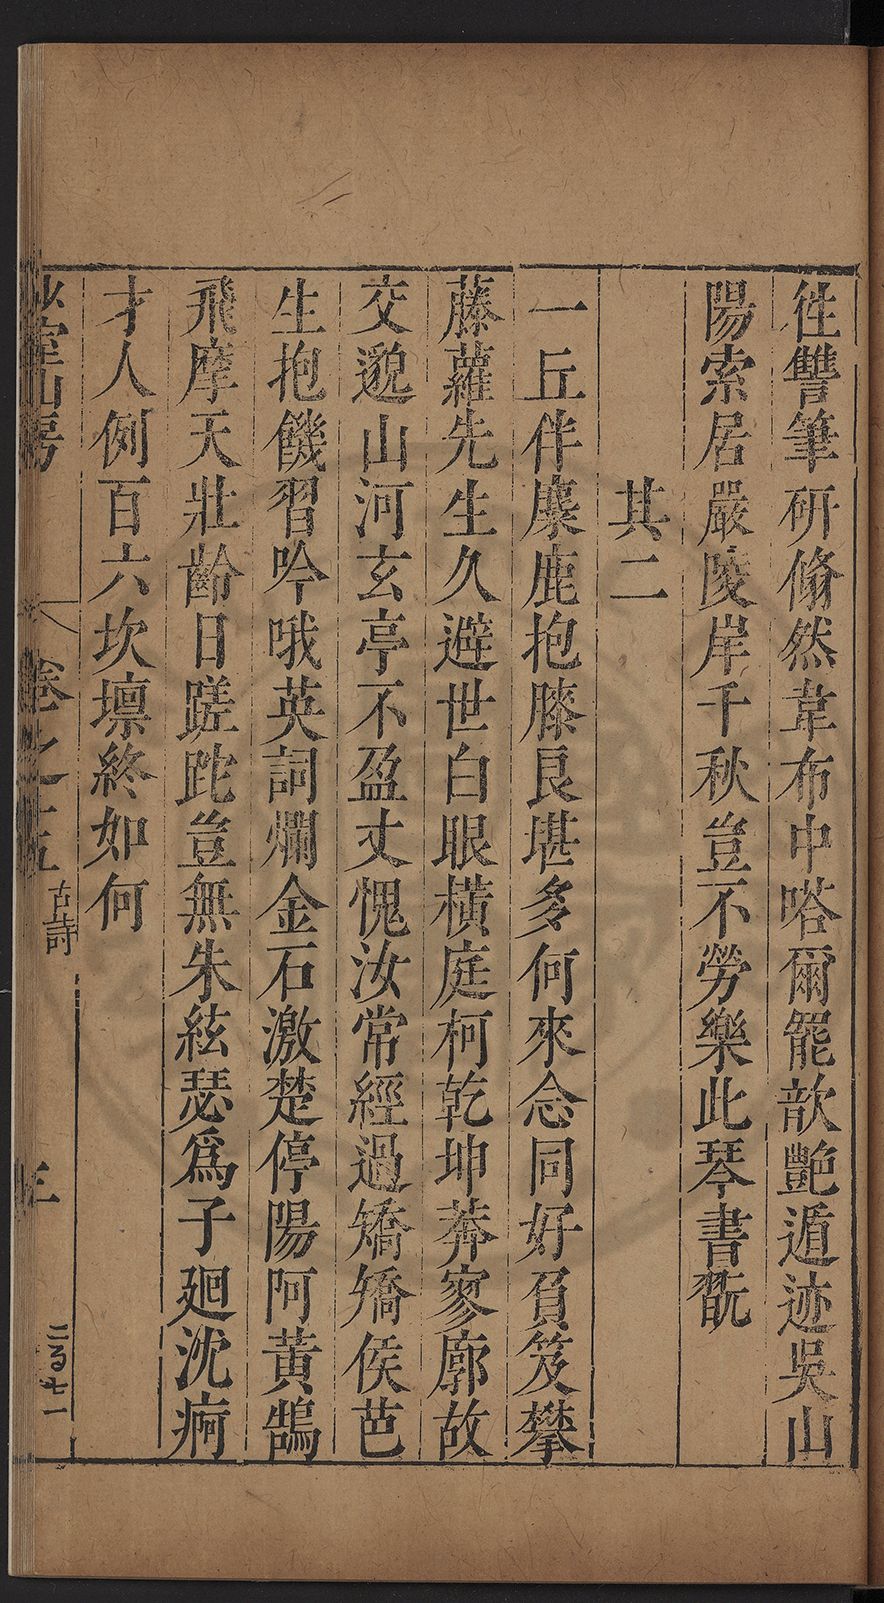 徃讐筆研翛然韋布中嗒爾罷歆艶遁迹吳山
陽索居嚴陵岸千秋豈不勞樂此琴書翫
其二
一丘伴麋鹿抱膝良堪多何來念同好負笈攀
藤蘿先生久避世白眼橫庭柯乾坤莽寥廓故
交邈山河玄亭不盈丈愧汝常經過矯矯侯芭
生抱饑習吟哦英詞爛金石激楚停陽阿黃鵠
飛摩天壯齡日蹉跎豈無朱絃瑟爲子廻沈痾
才人例百六坎壈終如何
室山房
卷之五
古詩
三